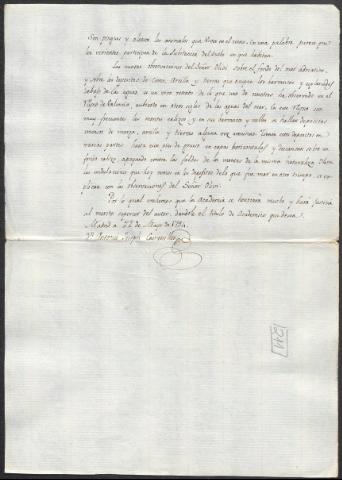 Son pingues y alagan los animales que viven en el cieno. En una palabra parece que
los vivientes participan de la substancia del suelo en que habitan.
Las nuevas observaciones del Señor Olivi sobre el fondo del mar Adriatico
y sobre los depositos de Cieno, Arcilla y tierras que ocupan los barrancos y cavidades
debajo de las aguas es un vivo retrato de lo que uno de nosotros ha observado en el
Reyno de Valencia, cubierto en otros siglos de las aguas del mar. En este Reyno son
muy frequentes los montes calizos, y en sus barrancos y valles se hallan depositos
menores de marga, arcilla y tierras alguna vez areniscas. Tienen estos depositos en
varias partes hasta cien pies de grueso en capas horizontales y descansan sobre un
fondo calizo, apoyando contra las faldas de los montes de la misma naturaleza. Estas
las ondulaciones que hoy vemos en los depositos de lo que fue mar en otro tiempo, se ex
plican con las observaciones del Señor Olivi.
Por lo qual creemos que la Academia se honrará mucho y hará justicia
al merito superior del autor, dandole el titulo de Academico que desea.
Madrid a 22 de Mayo de 1794.
Dn Antonio Josef Cavanilles